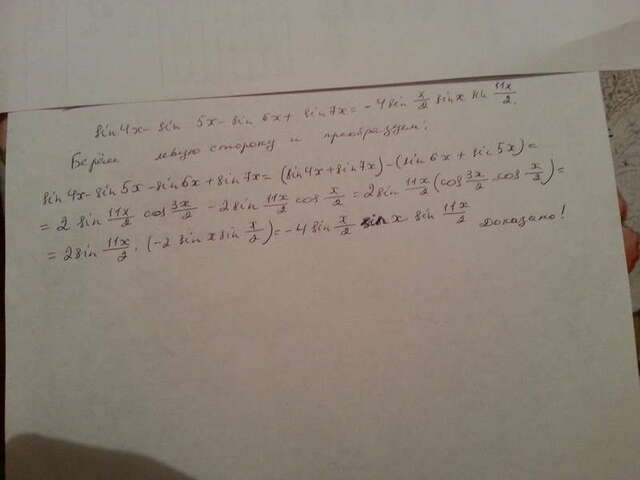 sin4x - sin 5x - sin 6x + sin7x = -4 sin x/2 sin x sin 11x/2.
Берём левую сторону и преобразуем:
sin 4x - sin 5x - sin 6x + sin 7x = (sin 4x + sin 7x) - (sin 6x + sin 5x) =
= 2 sin 11x/2 cos 3x/2 - 2 sin 11x/2 cos x/2 = 2 sin 11x/2 (cos 3x/2 - cos x/2) =
= 2 sin 11x/2 · (-2 sin x sin x/2) = -4 sin x/2 sin x sin 11x/2 Доказано!